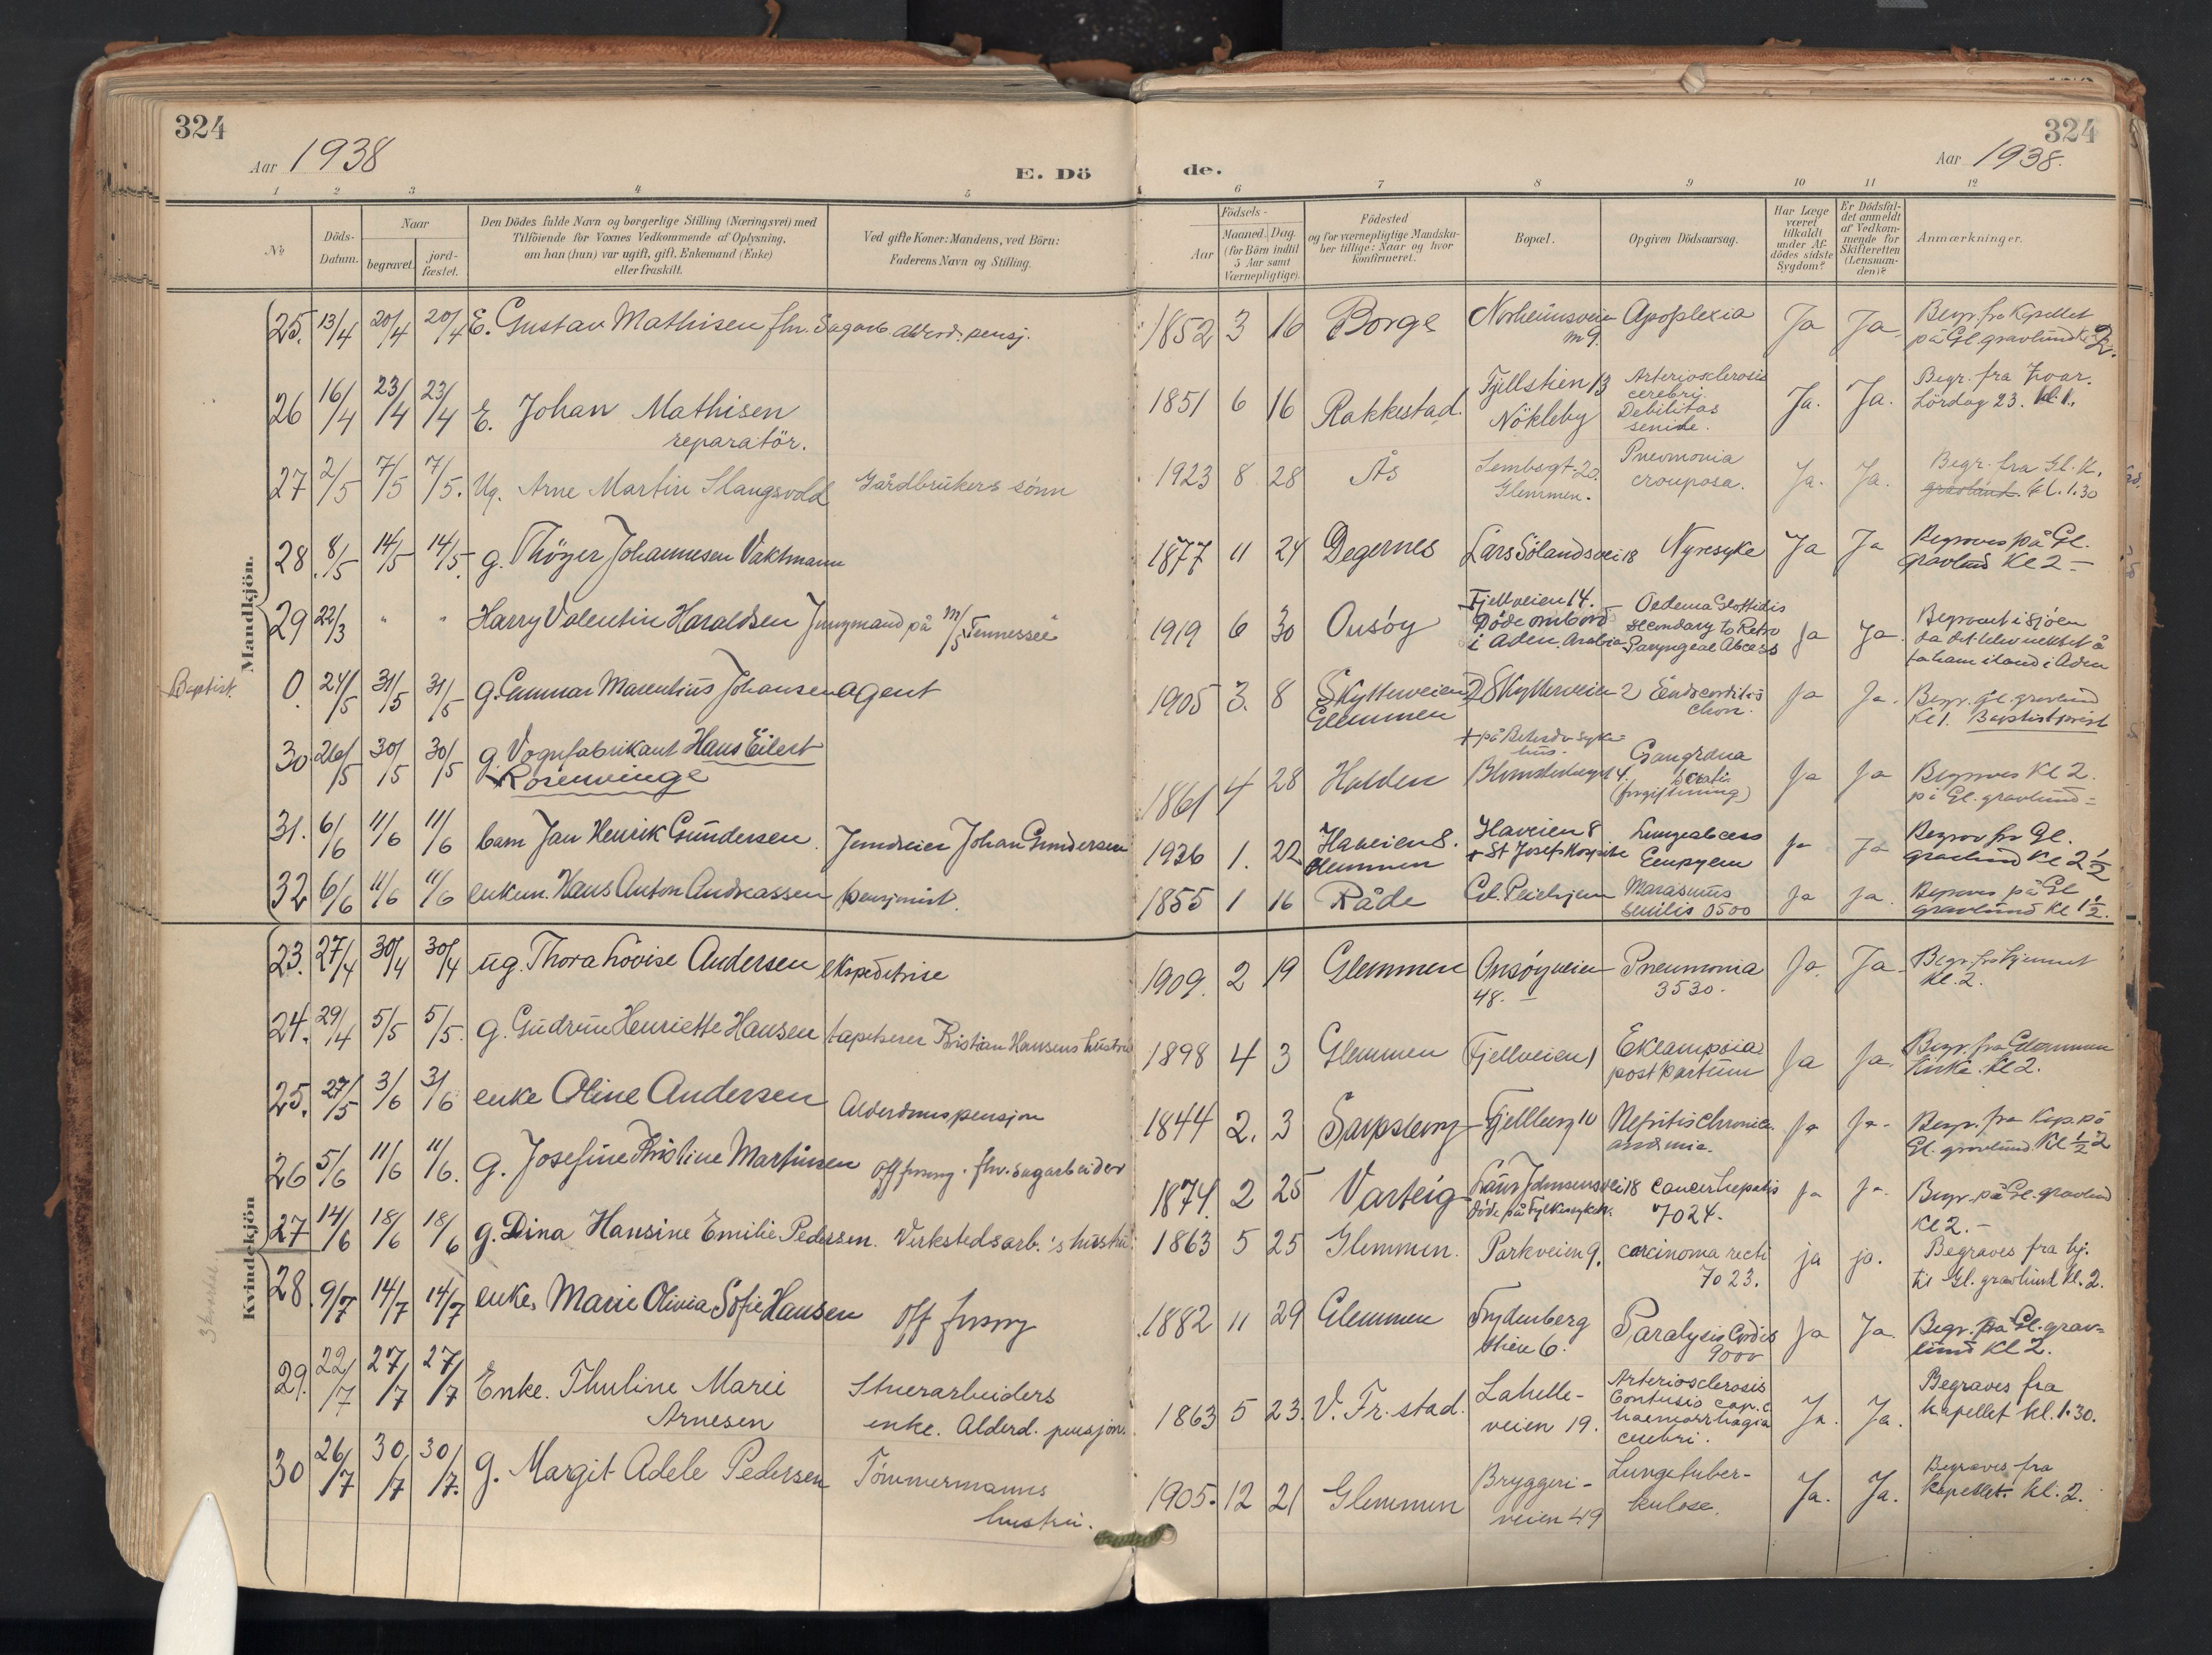 324
Aar 1938
E. Dö
de.
324
Aar 1938.
1 2 3 4 5 6 7 8 9 10 11 12
No
Döds-
Datum.
Naar
begravet.
jord-
fæstet.
Den Dödes fulde Navn og borgerlige Stilling (Næringsvei) med
Tilföiende for Voxnes Vedkommende af Oplysning,
om han (hun) var ugift, gift, Enkemand (Enke)
eller fraskilt.
Ved gifte Koner: Mandens, ved Börn:
Faderens Navn og Stilling.
Födsels-
Aar
Maaned. Dag.
(for Börn indtil
5 Aar samt
Værnepligtige).
Födested
og for værnepligtige Mandska-
ber tillige: Naar og hvor
konfirmeret.
Bopæl.
Opgiven Dödsaarsag.
Har Læge
været
tilkaldt
under Af-
dödes sidste
Sygdom?
Er Dödsfal-
det anmeldt
af Vedkom-
mende for
Skifteretten
(Lensman-
den)?
Anmærkninger.
Mandkjön.
25. 13/4 20/4 20/4 E. Gustav Mathisen fhv. Sagarb. alderd. pensj. 1852 3 16 Borge Norheimsveien Apoplexia Ja Ja Begr. fra Kapellet
m 9. på Gl. gravlund Kl 2.
26 16/4 23/4 23/4 E. Johan Mathisen 1851 6 16 Rakkestad. Fjellstien 13 Arteriosclerosis Ja. Ja. Begr. fra
reparatör. Nökleby cerebri. Lördag 23. kl. 1.
Debilitas
senile.
27 2/5 7/5 7/5. Ug. Arne Martin Slangsvold Gårdbrukers sönn 1923 8 28 Ås Lembsgt. 20. Pneumonia Ja. Ja. Begr. fra Gl. K.
Glemmen. crouposa. gravlund. kl. 1.30
28 8/5 14/5 14/5. g. Thöger Johannesen Vaktmann 1877 11 24 Degernes Lars Sölandsvei 18 Nyresyke Ja Ja Begraves på Gl.
gravlund Kl 2 –
29 22/3 " " Harry Valentin Haraldsen Jungmand på M/S "Tennessee" 1919 6 30 Onsöy Fjellveien 14. Oedema Glottidis Ja Ja. Begravet i sjöen
Döde ombord secondary to Retro da det blev nektet å
i Aden. Arabia Paryngeal Abcess ta ham iland i Aden
Baptist. 0. 24/5 31/5 31/5 g. Gunnar Marentius Johansen agent 1905 3. 8 Skytterveien 2 Skytterveien 2 Endocorditis Ja Ja. Begr. Gl. gravlund
Glemmen chon. Kl 1. Baptistprest
30 26/5 30/5 30/5 g. Vognfabrikant Hans Eilert 1861 4 28 Halden + på Betesda syke- Gangräna Ja Ja Begraves Kl 2.
Rosenvinge hus. på Gl. gravlund =
(forgiftning)
31. 6/6 11/6 11/6 barn Jan Henrik Gundersen. Jerndreier Johan Gundersen 1936 1. 22 Haveien 8. Haveien 8 Lungeabcess Ja Ja Begrav fra Gl.
Glemmen + St Josefs Hospital Empyem gravlund Kl 2 1/2
32 6/6 11/6 11/6 enkem. Hans Anton Andreassen pensjonist. 1855 1 16 Råde Gl. Pleiehjem Marasmus Ja Ja. Begraves på Gl
senilis 0500 gravlund Kl 1 1/2.
Kvindekjön
23. 27/4 30/4 30/4 ug. Thora Lovise Andersen ekspeditrise 1909. 2 19 Glemmen Onsöyveien Pneumonia Ja. Ja. Begr. fra hjemmet
48. – 3530. Kl. 2.
24. 29/4 5/5 5/5. g. Gudrun Henriette Hansen tapetserer Kristian Hansens hustru 1898 4 3 Glemmen Fjellveien 1 Eklampsia Ja Ja. Begr. fra Glemmen
post partum Kirke. Kl 2.
25. 27/5 3/6 3/6 enke Oline Andersen Alderdomspensjon 1844 2. 3 Sarpsborg Fjellberg 10 Nefritis chronica. Ja Ja. Begr. fra Kap. på
anämia. Gl. gravlund. Kl 1/2 2
26 5/6 11/6 11/6. g. Josefine Kristine Martinsen Off forsorg. fhv. sagarbeider 1874. 2 25 Varteig Johnsensvei 18 cancer hepatis Ja Ja. Begr. på Gl. gravlund
döde på Fylkessykeh. 7024. Kl 2. –
27 14/6 18/6 18/6 g. Dina Hansine Emilie Pedersen. Verkstedsarb.'s hustru 1863 5 25 Glemmen. Parkveien 9. carcinoma recti ja ja. Begraves fra hj.
7023. til Gl. gravlund kl. 2.
28. 9/7 14/7 14/7 enke, Marie Olivia Sofie Hansen Off forsorg 1882 11 29 Glemmen Frydenberg Paralysis Cordis Ja Ja. Begr. fra Gl. grav-
stien 6. 9000 lund Kl 2.
29. 22/7 27/7 27/7 Enke. Thuline Marie Stuerarbeiders 1863 5 23. V. Fr. stad. Lahelle- Arteriosclerosis Ja. Ja. Begraves fra
Arnesen enke. Alderd. pensjon. veien 19. Contusio cap. c kapellet kl. 1.30.
haemorrhagia
cerebri.
30 26/7 30/7 30/7. g. Margit Adele Pedersen Tömmermanns 1905. 12 21 Glemmen Bryggeri- Lungetuber- Ja. Ja. Begraves fra
hustru. veien 49 kulose. kapellet. kl. 2.